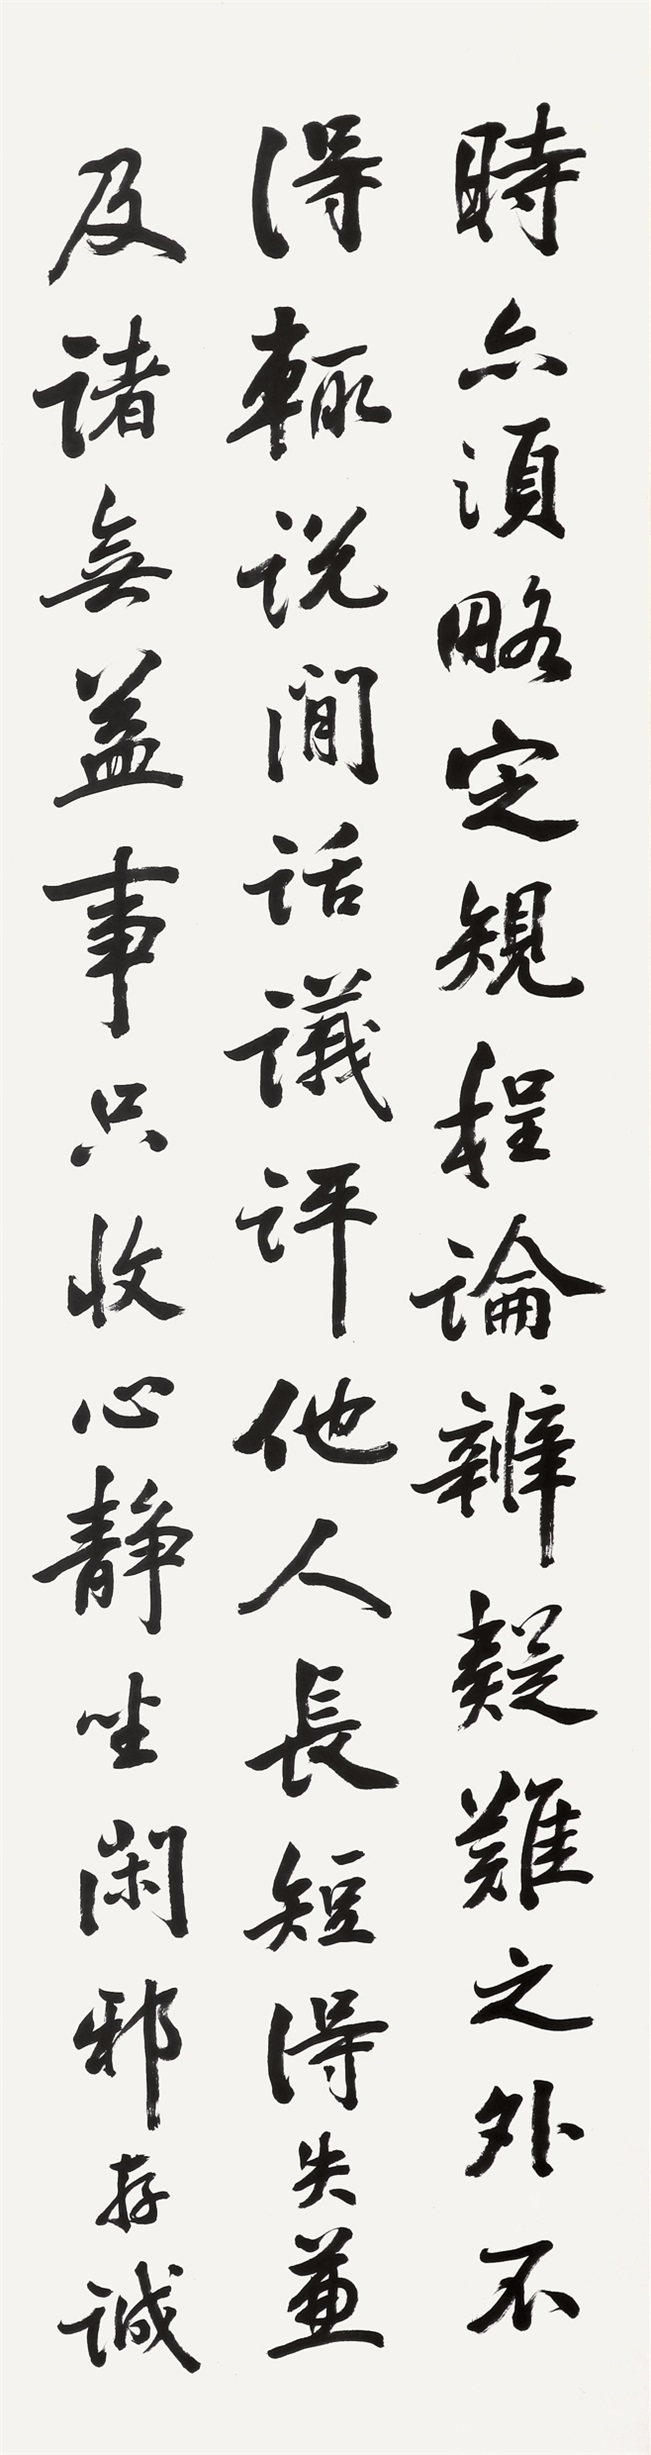 時亦須略定規程論辨疑難之外不
得輒説閒話議評他人長短得失兼
及諸無益事只收心靜坐閑邪存誠